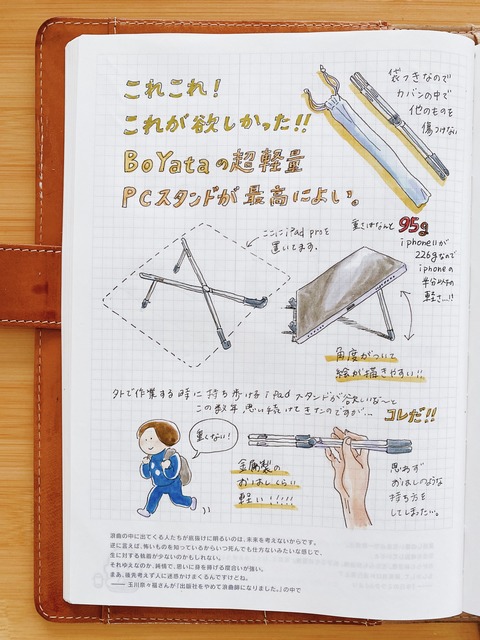 これこれ!
これが欲しかった!!
BoYataの超軽量
PCスタンドが最高によい。
袋つきなので
カバンの中で
他のものを
傷つけない
ここにiPad proを
置いてます。
重さはなんと95g
iphone11が
226gなので
iphoneの
半分以下の
軽さ…!!
角度がついて
絵が描きやすい!!
外で作業する時に持ち歩けるiPadスタンドが欲しいな〜と
この数年思い続けてきたのですが…
コレだ!!
重くない!
金属製の
おはしくらい
軽い!!!!!
思わず
おはしのような
持ち方を
してしまった…。
浪曲の中に出てくる人たちが底抜けに明るいのは、未来を考えないからです。
逆に言えば、怖いものを知っているからいつ死んでも仕方ないみたいな感じで、
生に対する執着が少ないのかもしれない。
それゆえなのか、純情で、思いに身を捧げる度合いが強い。
まあ、後先考えず人に迷惑かけまくるんですけどね。
―― 玉川奈々福さんが「出版社をやめて浪曲師になりました。」の中で